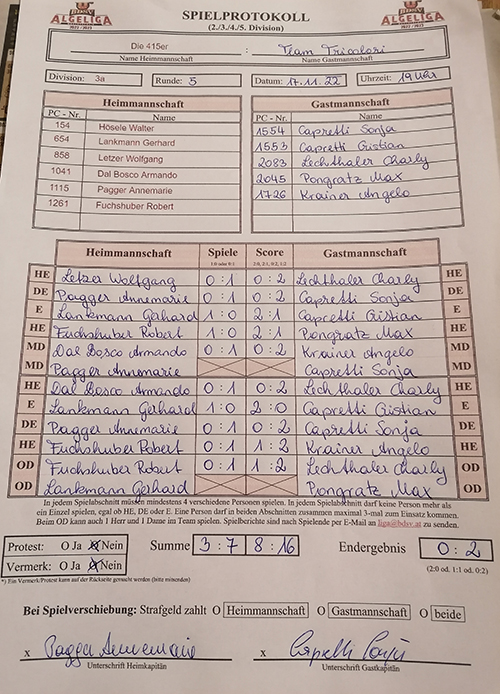 BDSV
ALGELIGA
2022 / 2023
SPIELPROTOKOLL
(2./3./4./5. Division)
BDSV
ALGELIGA
2022 / 2023
Die 415er : Team Tricolori
Name Heimmannschaft Name Gastmannschaft
Division: 3a Runde: 5 Datum: 17.11.22 Uhrzeit: 19 Uhr
Heimmannschaft Gastmannschaft
PC - Nr. Name PC - Nr. Name
154 Hösele Walter 1554 Capretti Sonja
654 Lankmann Gerhard 1553 Capretti Cristian
858 Letzer Wolfgang 2083 Lechthaler Charly
1041 Dal Bosco Armando 2045 Pongratz Max
1115 Pagger Annemarie 1726 Krainer Angelo
1261 Fuchshuber Robert
Heimmannschaft Spiele Score Gastmannschaft
1:0 oder 0:1 2:0, 2:1, 0:2, 1:2
HE Letzer Wolfgang 0 : 1 0 : 2 Lechthaler Charly HE
DE Pagger Annemarie 0 : 1 0 : 2 Capretti Sonja DE
E Lankmann Gerhard 1 : 0 2 : 1 Capretti Cristian E
HE Fuchshuber Robert 1 : 0 2 : 1 Pongratz Max HE
MD Dal Bosco Armando 0 : 1 0 : 2 Krainer Angelo MD
MD Pagger Annemarie Capretti Sonja MD
HE Dal Bosco Armando 0 : 1 0 : 2 Lechthaler Charly HE
E Lankmann Gerhard 1 : 0 2 : 0 Capretti Cristian E
DE Pagger Annemarie 0 : 1 0 : 2 Capretti Sonja DE
HE Fuchshuber Robert 0 : 1 1 : 2 Krainer Angelo HE
OD Fuchshuber Robert 0 : 1 1 : 2 Lechthaler Charly OD
OD Lankmann Gerhard Pongratz Max OD
In jedem Spielabschnitt müssen mindestens 4 verschiedene Personen spielen. In jedem Spielabschnitt darf keine Person mehr als
ein Einzel spielen, egal ob HE, DE oder E. Eine Person darf in beiden Abschnitten zusammen maximal 3-mal zum Einsatz kommen.
Beim OD kann auch 1 Herr und 1 Dame im Team spielen. Spielberichte sind nach Spielende per E-Mail an liga@bdsv.at zu senden.
Protest: O Ja O Nein Summe 3 : 7 8 : 16 Endergebnis 0 : 2
Vermerk: O Ja O Nein (2:0 od. 1:1 od. 0:2)
*) Ein Vermerk/Protest kann auf der Rückseite gemacht werden (bitte minenden)
Bei Spielverschiebung: Strafgeld zahlt O Heimmannschaft O Gastmannschaft O beide
x Pagger Annemarie x
Unterschrift Heimkapitän Unterschrift Gastkapitän